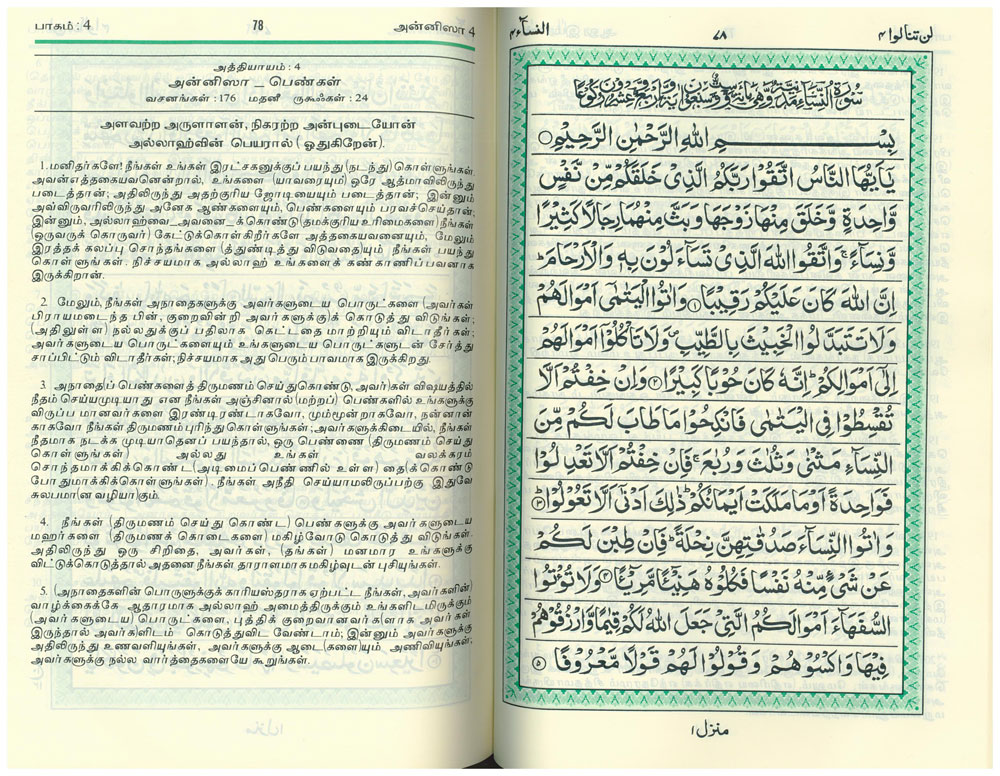 பாகம் : 4 78 அன்னிஸா 4
அத்தியாயம் : 4
அன்னிஸா _ பெண்கள்
வசனங்கள் : 176 மதனீ ருகூஃகள் : 24
அளவற்ற அருளாளன், நிகரற்ற அன்புடையோன்
அல்லாஹ்வின் பெயரால் ( ஓதுகிறேன்).
1. மனிதர்களே! நீங்கள் உங்கள் இரட்சகனுக்குப் பயந்து (நடந்து) கொள்ளுங்கள்
அவன்எத்தகையவனென்றால், உங்களை (யாவரையும்) ஒரே ஆத்மாவிலிருந்து
படைத்தான்; அதிலிருந்து அதற்குரிய ஜோடியையும் படைத்தான்; இன்னும்
அவ்விருவரிலிருந்து அனேக ஆண்களையும், பெண்களையும் பரவச்செய்தான்;
இன்னும், அல்லாஹ்வை_அவனை_க்கொண்டு (தமக்குரிய உரிமைகளை) நீங்கள்
ஒருவருக் கொருவர்) கேட்டுக்கொள்கிறீர்களே அத்தகையவனையும், மேலும்
இரத்தக் கலப்பு சொந்தங்களை (த்துண்டித்து விடுவதை)யும் நீங்கள் பயந்து
கொள்ளுங்கள். நிச்சயமாக அல்லாஹ் உங்களைக் கண்காணிப்பவனாக
இருக்கிறான்.
2. மேலும், நீங்கள் அநாதைகளுக்கு அவர்களுடைய பொருட்களை (அவர்கள்
பிராயமடைந்த பின், குறைவின்றி அவர்களுக்கு)க் கொடுத்து விடுங்கள்;
(அதிலுள்ள) நல்லதுக்குப் பதிலாக கெட்டதை மாற்றியும் விடாதீர்கள்;
அவர்களுடைய பொருட்களையும் உங்களுடைய பொருட்களுடன் சேர்த்து
சாப்பிட்டும் விடாதீர்கள்; நிச்சயமாக அது பெரும் பாவமாக இருக்கிறது.
3. அநாதைப் பெண்களைத் திருமணம் செய்துகொண்டு, அவர்)கள் விஷயத்தில்
நீதம் செய்யமுடியாது என நீங்கள் அஞ்சினால் (மற்றப்) பெண்களில் உங்களுக்கு
விருப்ப மானவர்களை இரண்டிரண்டாகவோ, மும்மூன்றாகவோ, நன்னான்
காகவோ நீங்கள் திருமணம் புரிந்து கொள்ளுங்கள்; அவர்களுக்கிடையில், நீங்கள்
நீதமாக நடக்க முடியாதெனப் பயந்தால், ஒரு பெண்ணை (திருமணம் செய்து
கொள்ளுங்கள்) அல்லது உங்கள் வலக்கரம்
சொந்தமாக்கிக்கொண்ட(அடிமைப்பெண்ணில் உள்ள) தை(க்கொண்டு
போதுமாக்கிக்கொள்ளுங்கள்) . நீங்கள் அநீதி செய்யாமலிருப்பற்கு இதுவே
சுலபமா(ன வழியா)கும்.
4. நீங்கள் (திருமணம் செய்து கொண்ட) பெண்களுக்கு அவர்களுடைய
மஹர்களை (திருமணக் கொடைகளை) மகிழ்வோடு கொடுத்து விடுங்கள்.
அதிலிருந்து ஒரு சிறிதை, அவர்கள், (தங்கள்) மனமார உங்களுக்கு
விட்டுக்கொடுத்தால் அதனை நீங்கள் தாராளமாகமகிழ்வுடன் புசியுங்கள்.
5. (அநாதைகளின் பொருளுக்குக் காரியஸ்தராக ஏற்பட்ட நீங்கள், அவர்களின்)
வாழ்க்கைக்கே ஆதாரமாக அல்லாஹ் அமைத்திருக்கும் உங்களிடமிருக்கும்
(அவர்களுடைய) பொருட்களை, புத்திக் குறைவானவர்(களாக அவர்கள்
இருந்தால் அவர்)களிடம் கொடுத்துவிட வேண்டாம்; இன்னும் அவர்களுக்கு
அதிலிருந்து உணவளியுங்கள், அவர்களுக்கு ஆடை(களை)யும் அணிவியுங்கள்;
அவர்களுக்கு நல்ல வார்த்தைகளையே கூறுங்கள்.
لن تنالوا ۴ ۷۸ النسآء ۴
بِسْمِ اللهِ الرَّحْمٰنِ الرَّحِيْمِ
يٰٓاَيُّهَا النَّاسُ اتَّقُوْا رَبَّكُمُ الَّذِىْ خَلَقَكُمْ مِّنْ نَّفْسٍ
وَّاحِدَةٍ وَّخَلَقَ مِنْهَا زَوْجَهَا وَبَثَّ مِنْهُمَا رِجَالًا كَثِيْرًا
وَّنِسَآءً ۚ وَاتَّقُوا اللهَ الَّذِىْ تَسَآءَلُوْنَ بِهٖ وَالْاَرْحَامَ ؕ
اِنَّ اللهَ كَانَ عَلَيْكُمْ رَقِيْبًا ۱ وَاٰتُوا الْيَتٰمٰٓى اَمْوَالَهُمْ
وَلَا تَتَبَدَّلُوا الْخَبِيْثَ بِالطَّيِّبِ ۪ وَلَا تَاْكُلُوْٓا اَمْوَالَهُمْ
اِلٰٓى اَمْوَالِكُمْ ؕ اِنَّهٗ كَانَ حُوْبًا كَبِيْرًا ۲ وَاِنْ خِفْتُمْ اَلَّا
تُقْسِطُوْا فِى الْيَتٰمٰى فَانْكِحُوْا مَا طَابَ لَكُمْ مِّنَ
النِّسَآءِ مَثْنٰى وَثُلٰثَ وَرُبٰعَ ۚ فَاِنْ خِفْتُمْ اَلَّا تَعْدِلُوْا
فَوَاحِدَةً اَوْ مَا مَلَكَتْ اَيْمَانُكُمْ ؕ ذٰلِكَ اَدْنٰٓى اَلَّا تَعُوْلُوْا ۳
وَاٰتُوا النِّسَآءَ صَدُقٰتِهِنَّ نِحْلَةً ؕ فَاِنْ طِبْنَ لَكُمْ
عَنْ شَىْءٍ مِّنْهُ نَفْسًا فَكُلُوْهُ هَنِيْٓئًا مَّرِيْٓئًا ۴ وَلَا تُؤْتُوا
السُّفَهَآءَ اَمْوَالَكُمُ الَّتِىْ جَعَلَ اللهُ لَكُمْ قِيٰمًا وَّارْزُقُوْهُمْ
فِيْهَا وَاكْسُوْهُمْ وَقُوْلُوْا لَهُمْ قَوْلًا مَّعْرُوْفًا ۵
منزل ۱